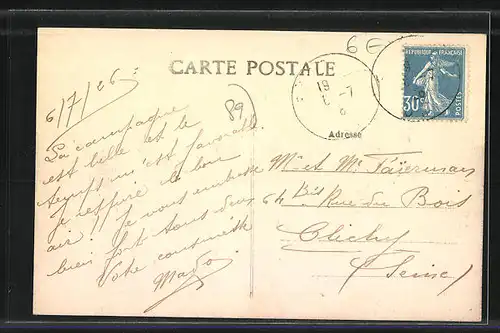 6 €
CARTE POSTALE
REPUBLIQUE FRANÇAISE
30c
POSTES
18 -7
6/7/26
89
Adresse
La campagne
est belle et le
temps m'est favorable
Je respire le bon
air !! Je vous embrasse
bien fort tous deux
Votre
Mado
Mme et Mr
64 bis Rue du Bois
Clichy
(Seine)